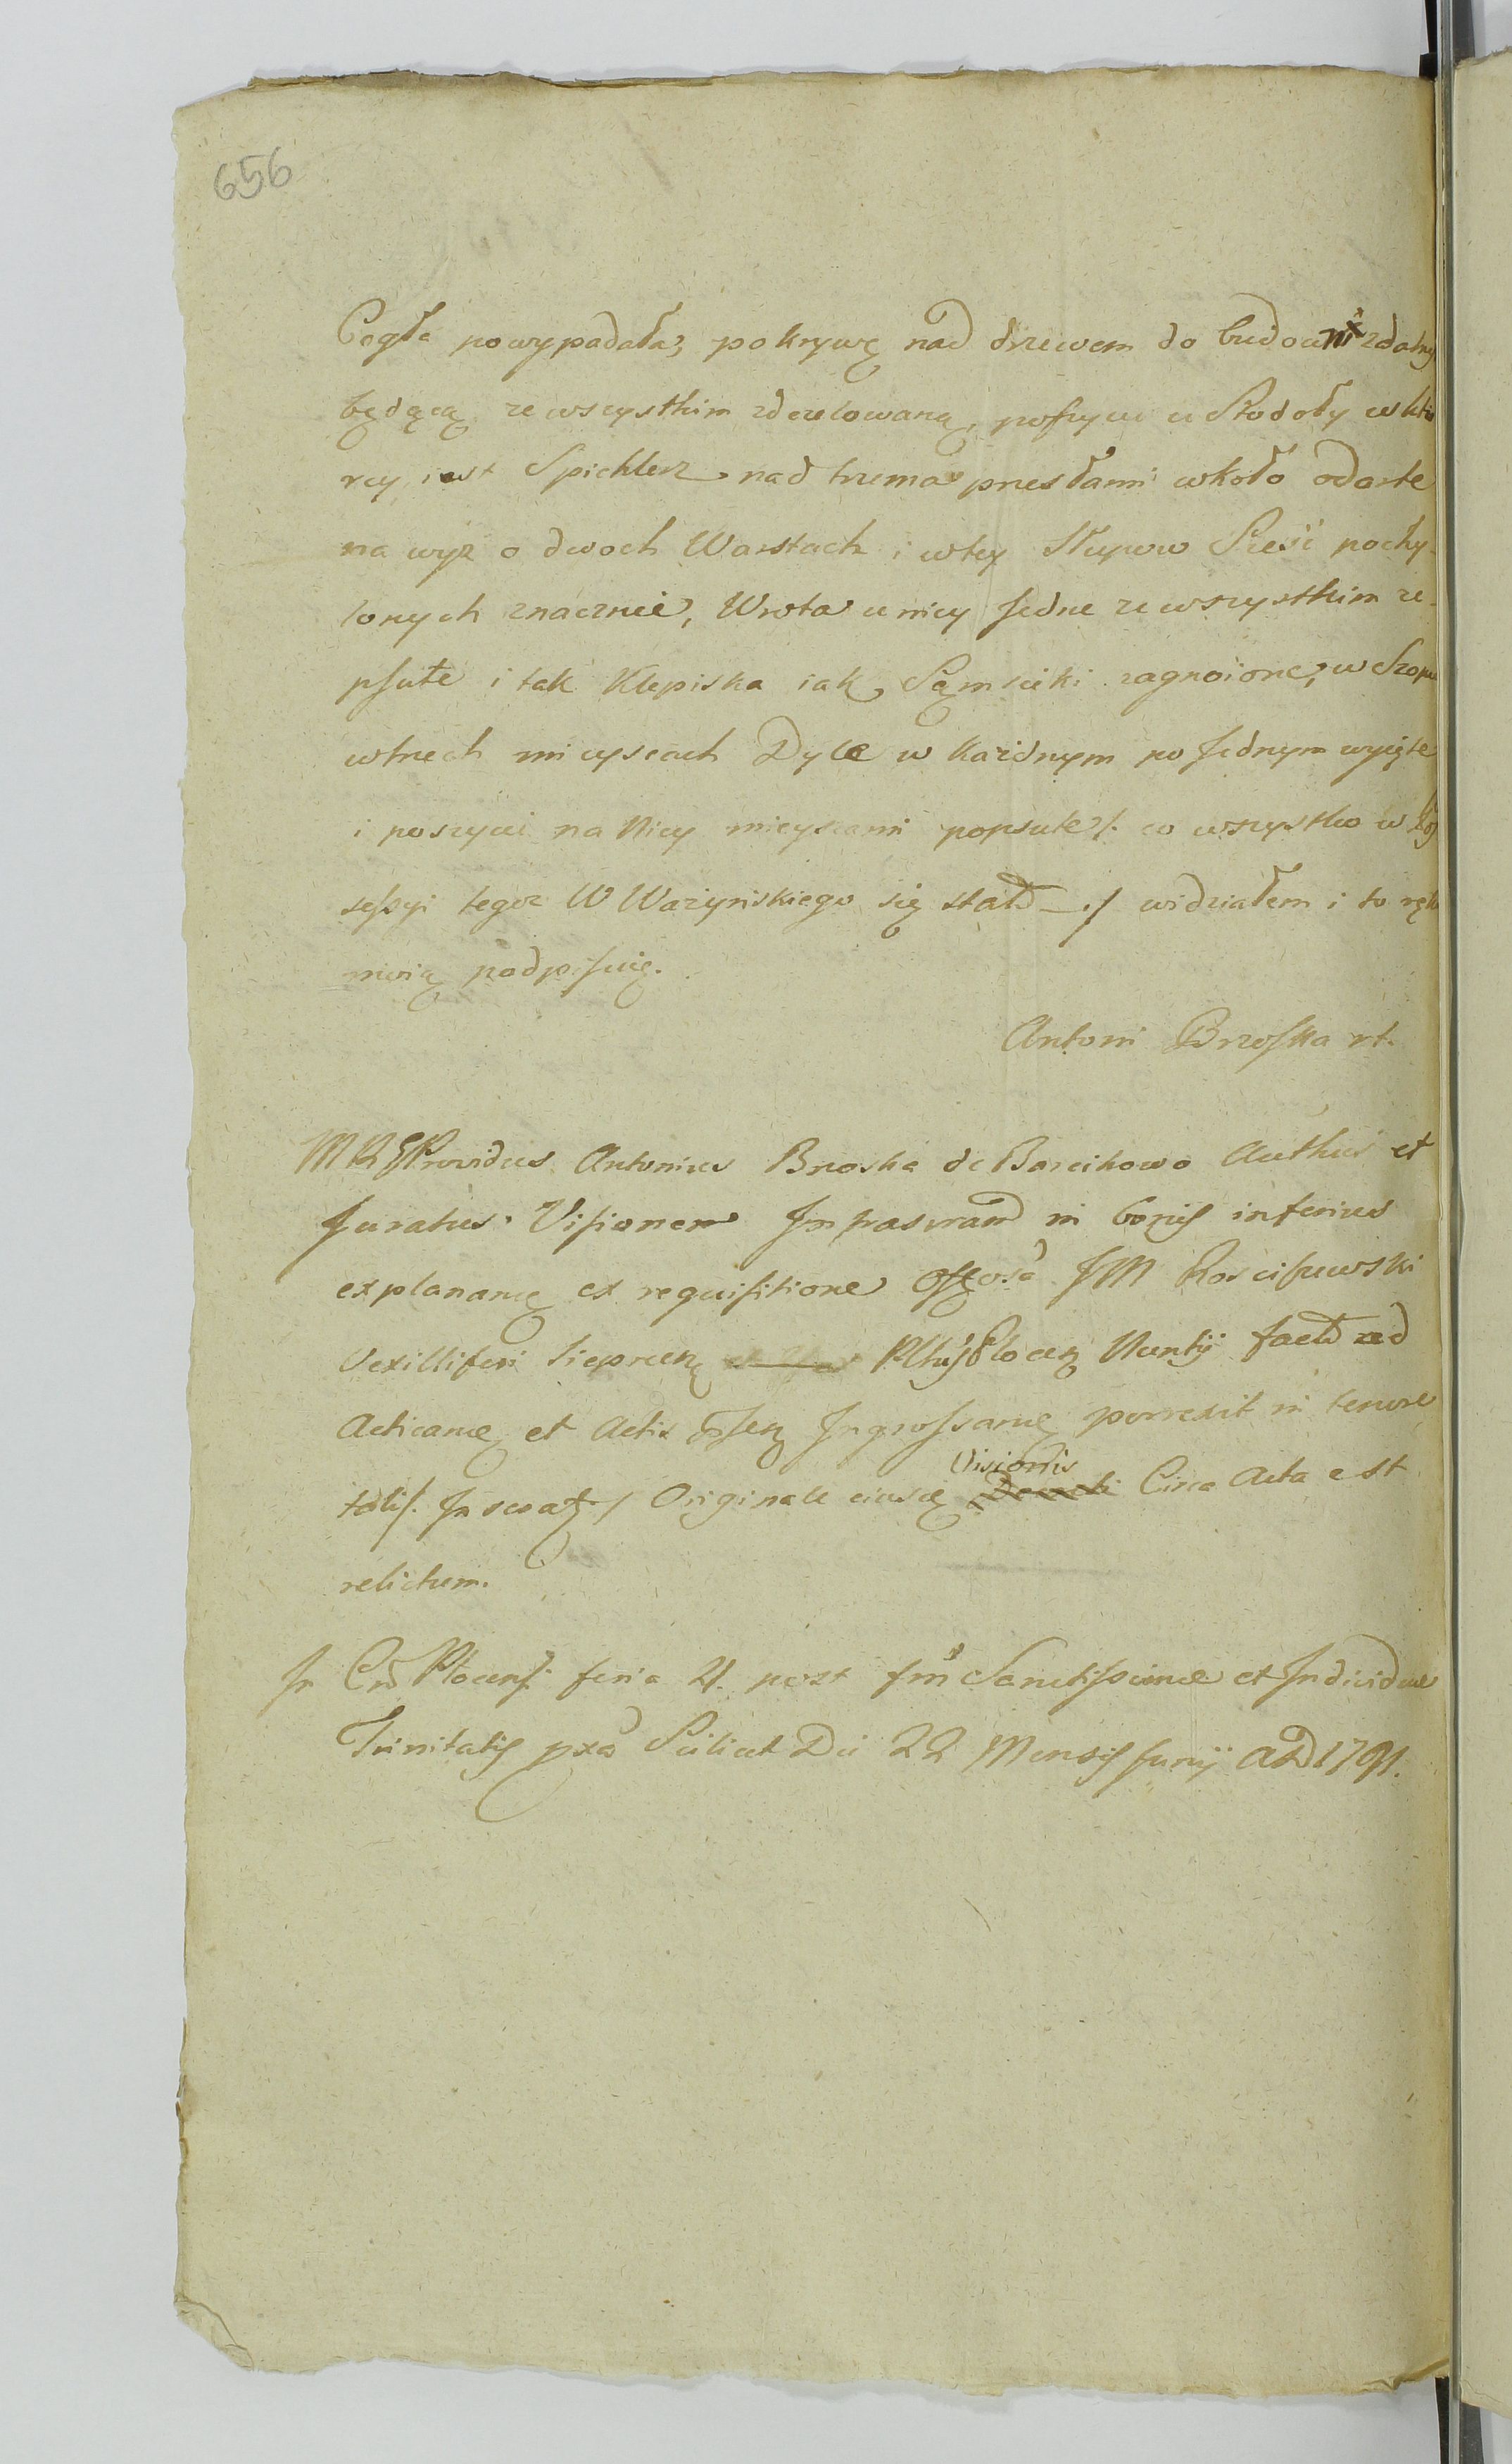 656
Cegła powypadała, pokrywę nad drzewem do budowni zdatny
będącą ze wszystkim zdezelowaną, poszycie u Stodoły w któ
rey iest Spichlerz nad trzema przesłami wkoło odarte
na wyz o dwoch Warstach i w tey Słupow Sześć pochy-
lonych znacznie, Wrota u niey Jedne ze wszystkim ze-
psute i tak Klepiska iak Sąmsieki zagnoione, w Szopie
w trzech mieyscach Dyle w każdnym po Jednym wyięte
i poszycie na Niey mieyscami popsute /. co wszystko w
sessyi tegoz W Ważyńskiego się stało ./ widziałem i to ręką
moią podpisuię.
Antoni Brzoska
Providus Antonius Brzoska de Barcikowo Authus et
Juratus Visionem Infrascram in bonis inferius
explanan ex requisitione JM Rosciszewski
Vexilliferi Sieprcen Plocen Nuntij factam ad
Acticand et Actis Ingrossand porrexit in tenore
tali. In scrat ./ Originale eiusd Visionis Circa Acta est
relictum.
In Plocensi feria 4. post fm Sanctissimae et Individuae
Trinitatis pxa Scilicet Die 22 Mensis Junij AD 1791.